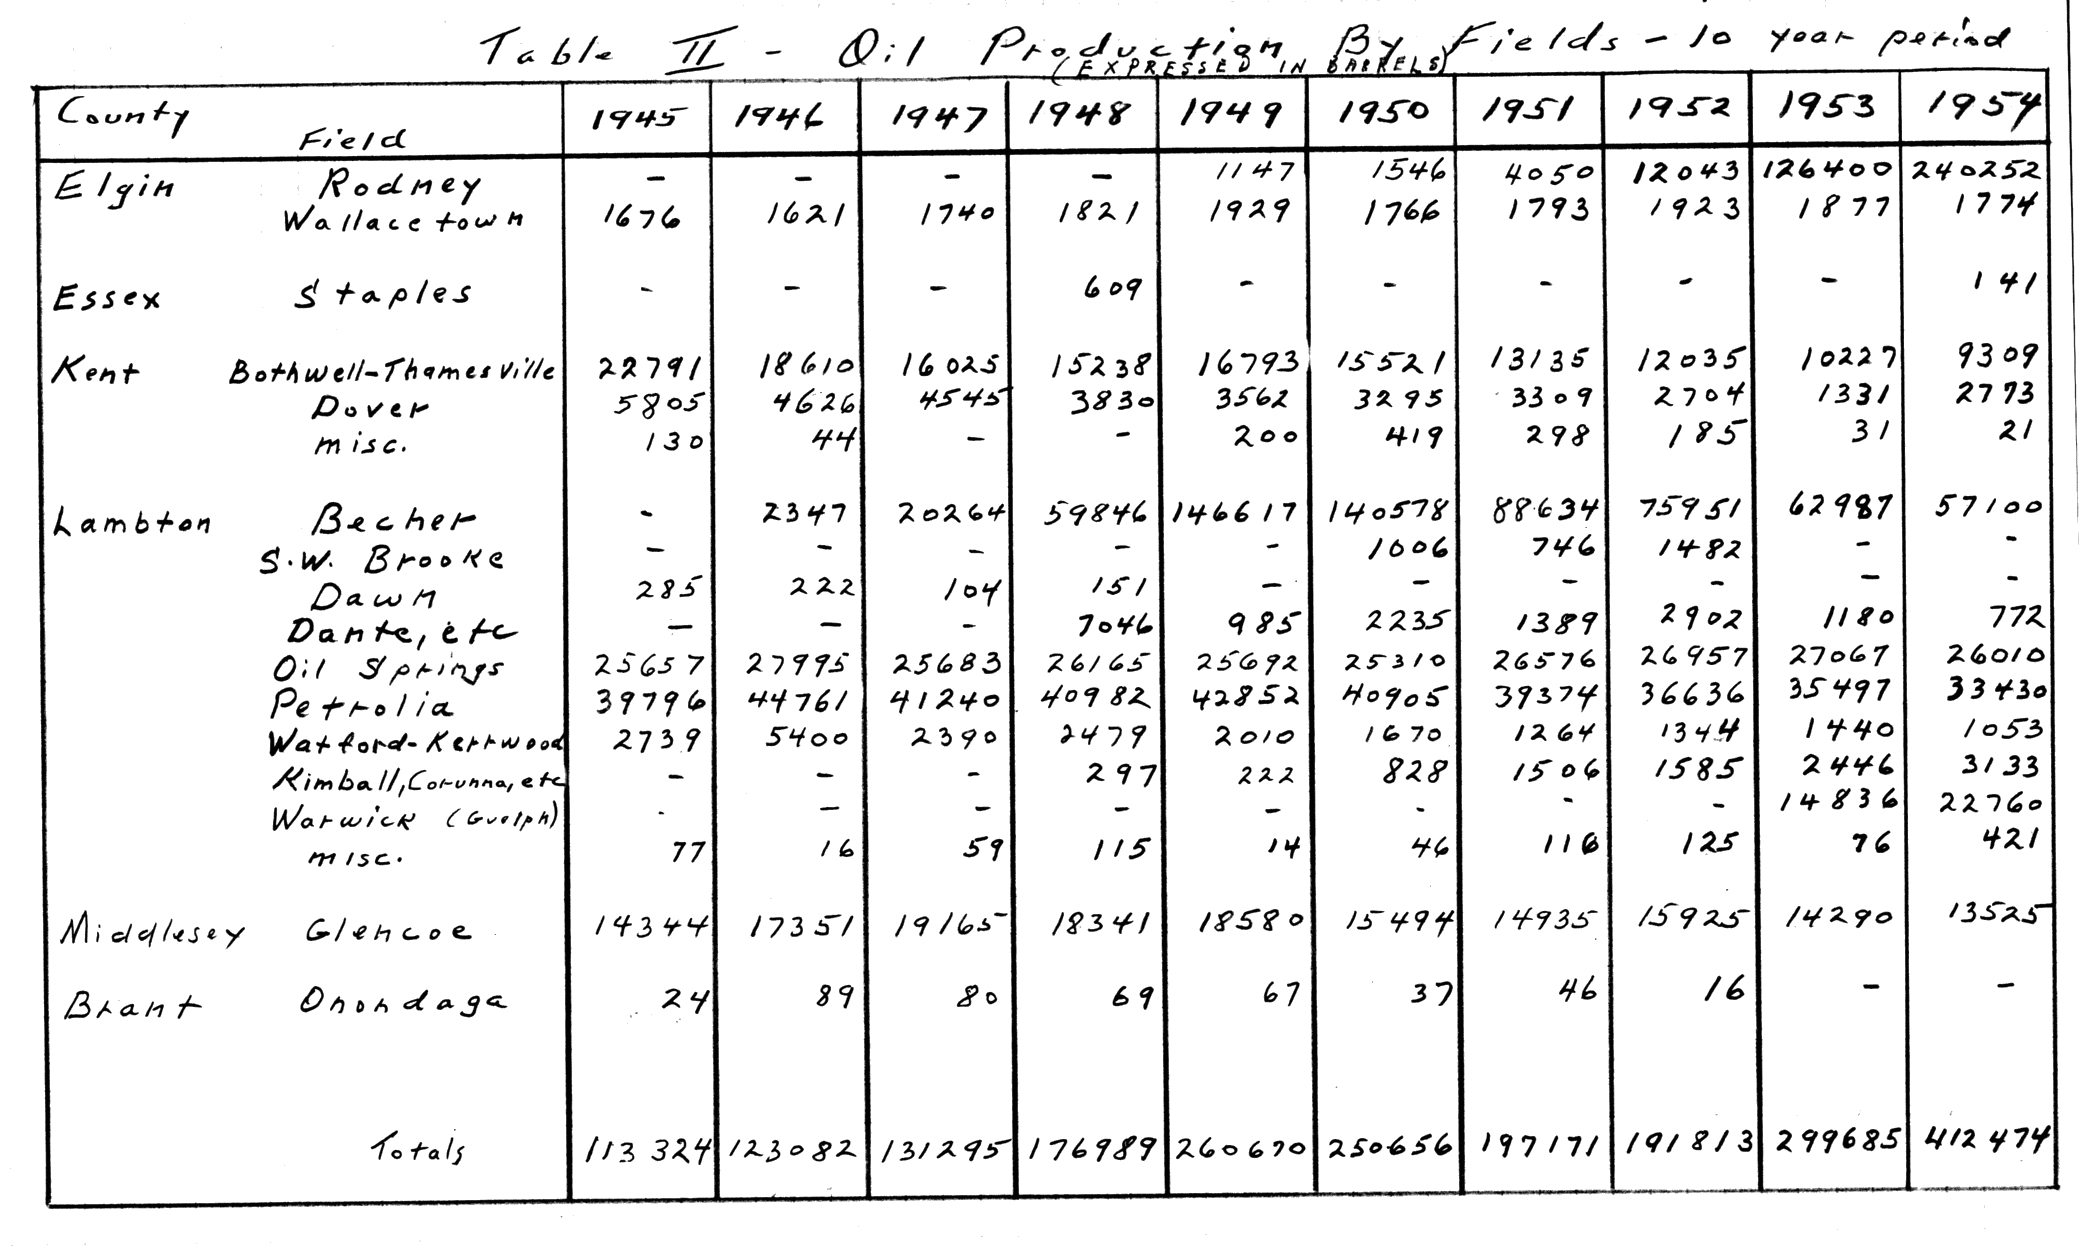 Table II - Oil Production By Fields - 10 year period
(EXPRESSED IN BARRELS)
County Field 1945 1946 1947 1948 1949 1950 1951 1952 1953 1954
Elgin Rodney - - - - 1147 1546 4050 12043 126400 240252
Wallacetown 1676 1621 1740 1821 1929 1766 1793 1923 1877 1774
Essex Staples - - - 609 - - - - - 141
Kent Bothwell-Thamesville 22791 18610 16025 15238 16793 15521 13135 12035 10227 9309
Dover 5805 4626 4545 3830 3562 3295 3309 2704 1331 2773
misc. 130 44 - - 200 419 298 185 31 21
Lambton Becher - 2347 20264 59846 146617 140578 88634 75951 62987 57100
S.W. Brooke - - - - - 1006 746 1482 - -
Dawn 285 222 104 151 - - - - - -
Dante, etc - - - 7046 985 2235 1389 2902 1180 772
Oil Springs 25657 27995 25683 26165 25692 25310 26576 26957 27067 26010
Petrolia 39796 44761 41240 40982 42852 40905 39374 36636 35497 33430
Watford-Kerrwood 2739 5400 2390 2479 2010 1670 1264 1344 1440 1053
Kimball, Corunna, etc - - - 297 222 828 1506 1585 2446 3133
Warwick (Guelph) - - - - - - - - 14836 22760
misc. 77 16 59 115 14 46 116 125 76 421
Middlesey Glencoe 14344 17351 19165 18341 18580 15494 14935 15925 14290 13525
Brant Onondaga 24 89 80 69 67 37 46 16 - -
Totals 113324 123082 131295 176989 260670 250656 197171 191813 299685 412474